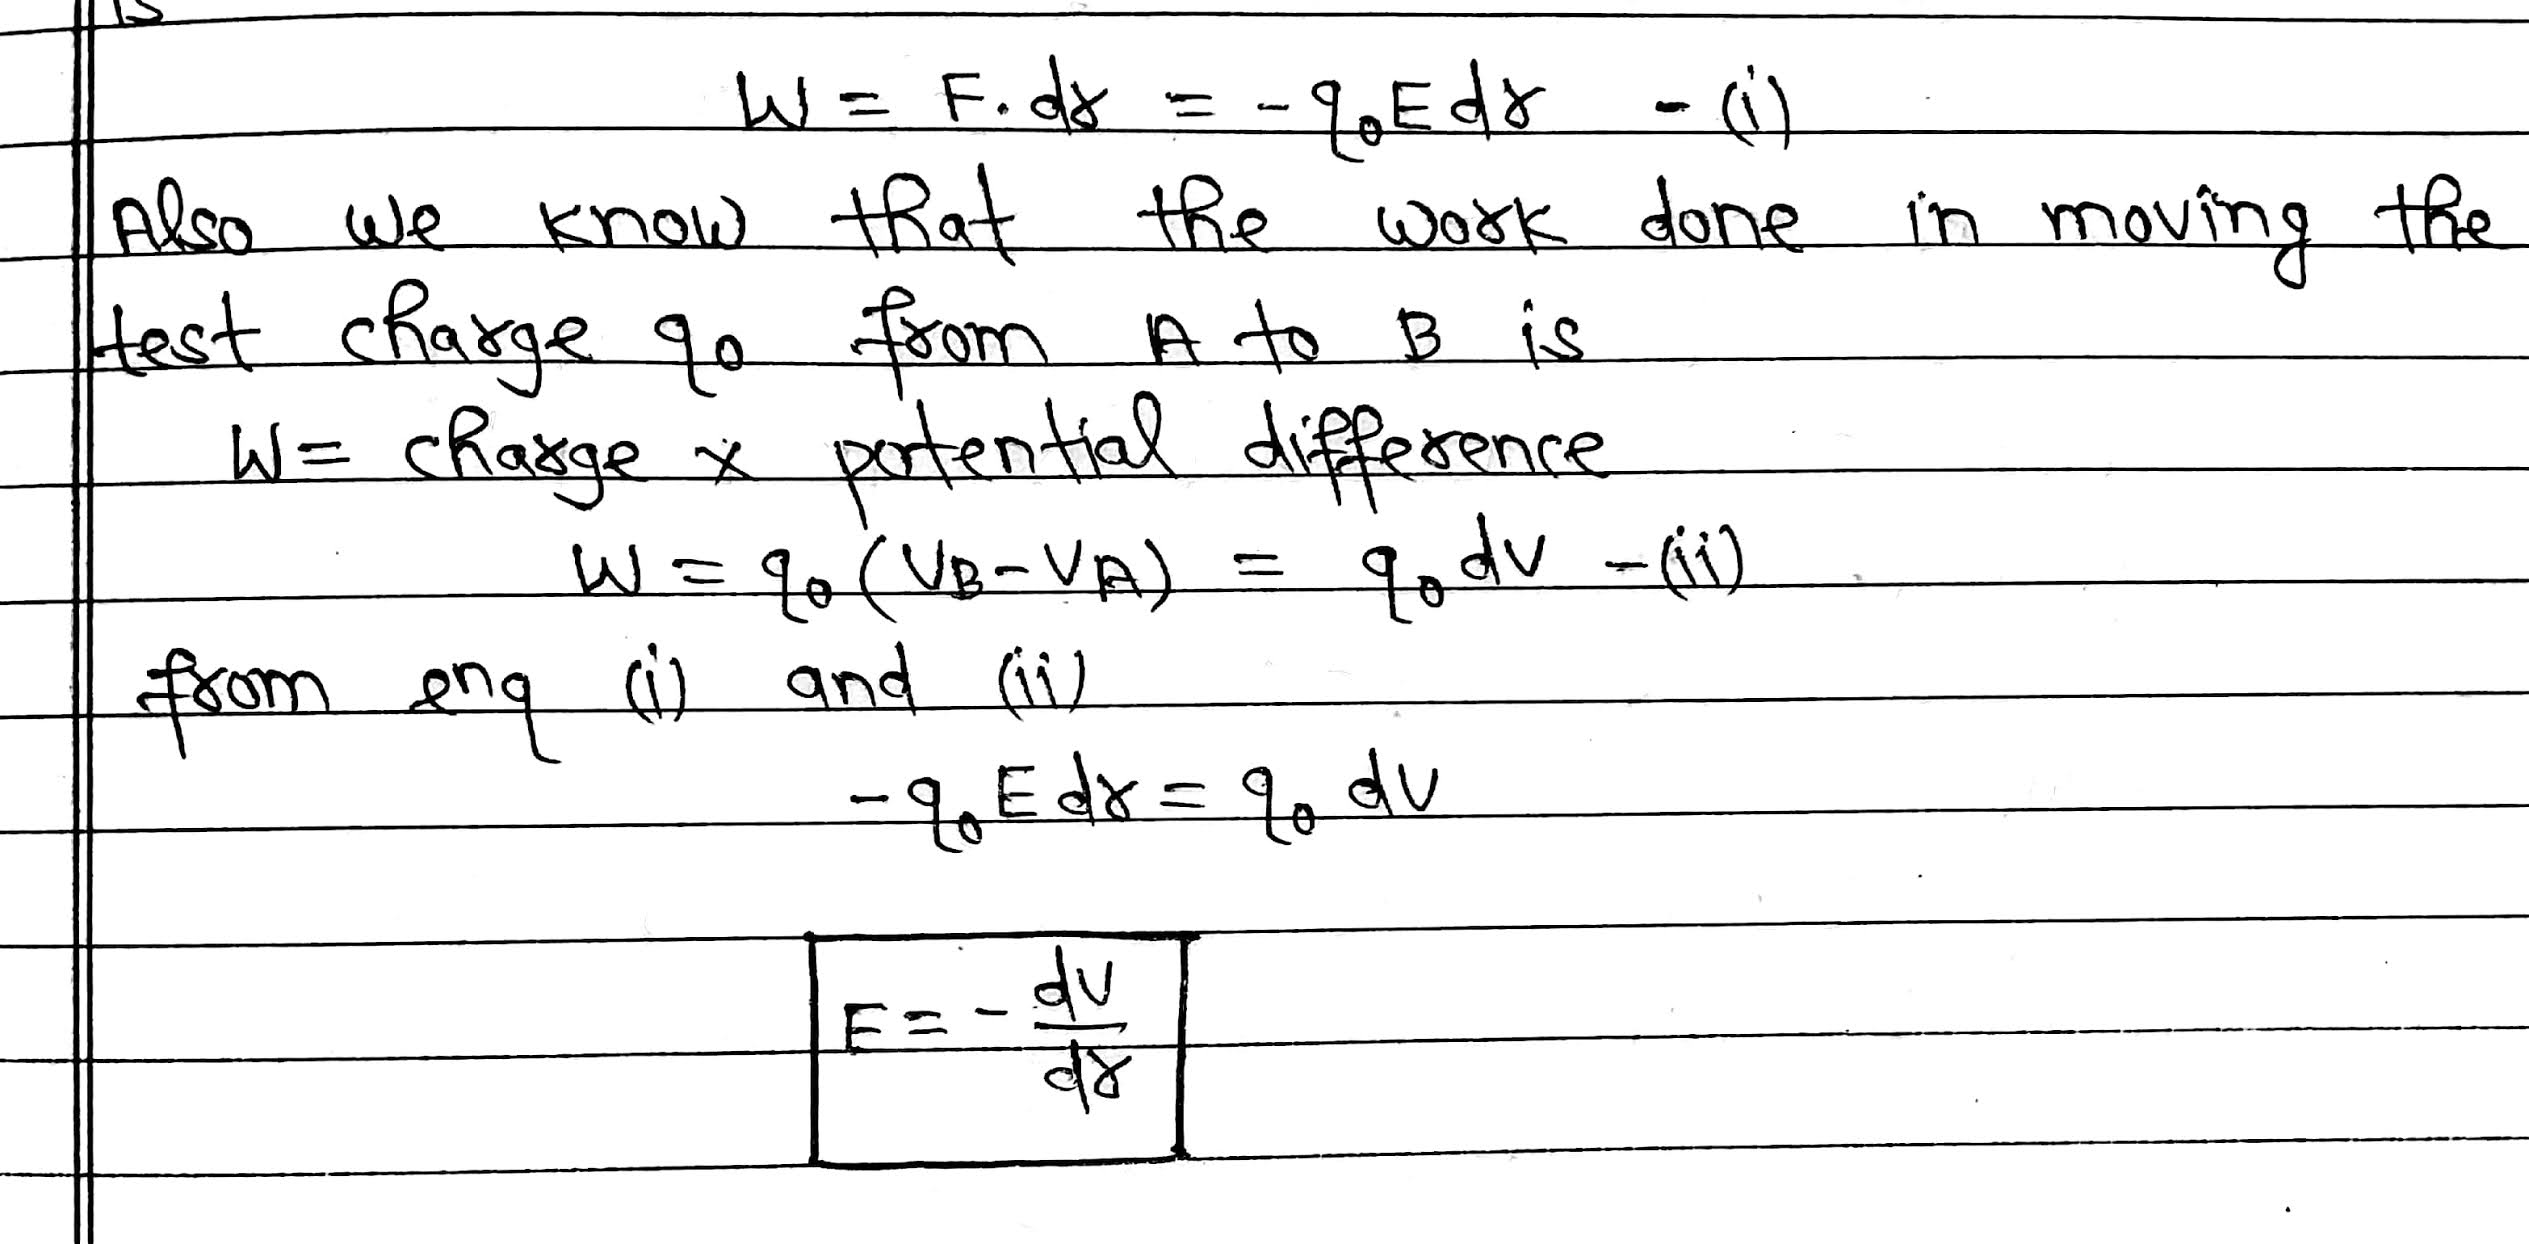 is
W = F. dr = - q₀E dr - (i)
Also we know that the work done in moving the
test charge q₀ from A to B is
W = charge x potential difference
W = q₀ (VB - VA) = q₀ dV - (ii)
from enq (i) and (ii)
- q₀ E dr = q₀ dV
E = - dV/dr